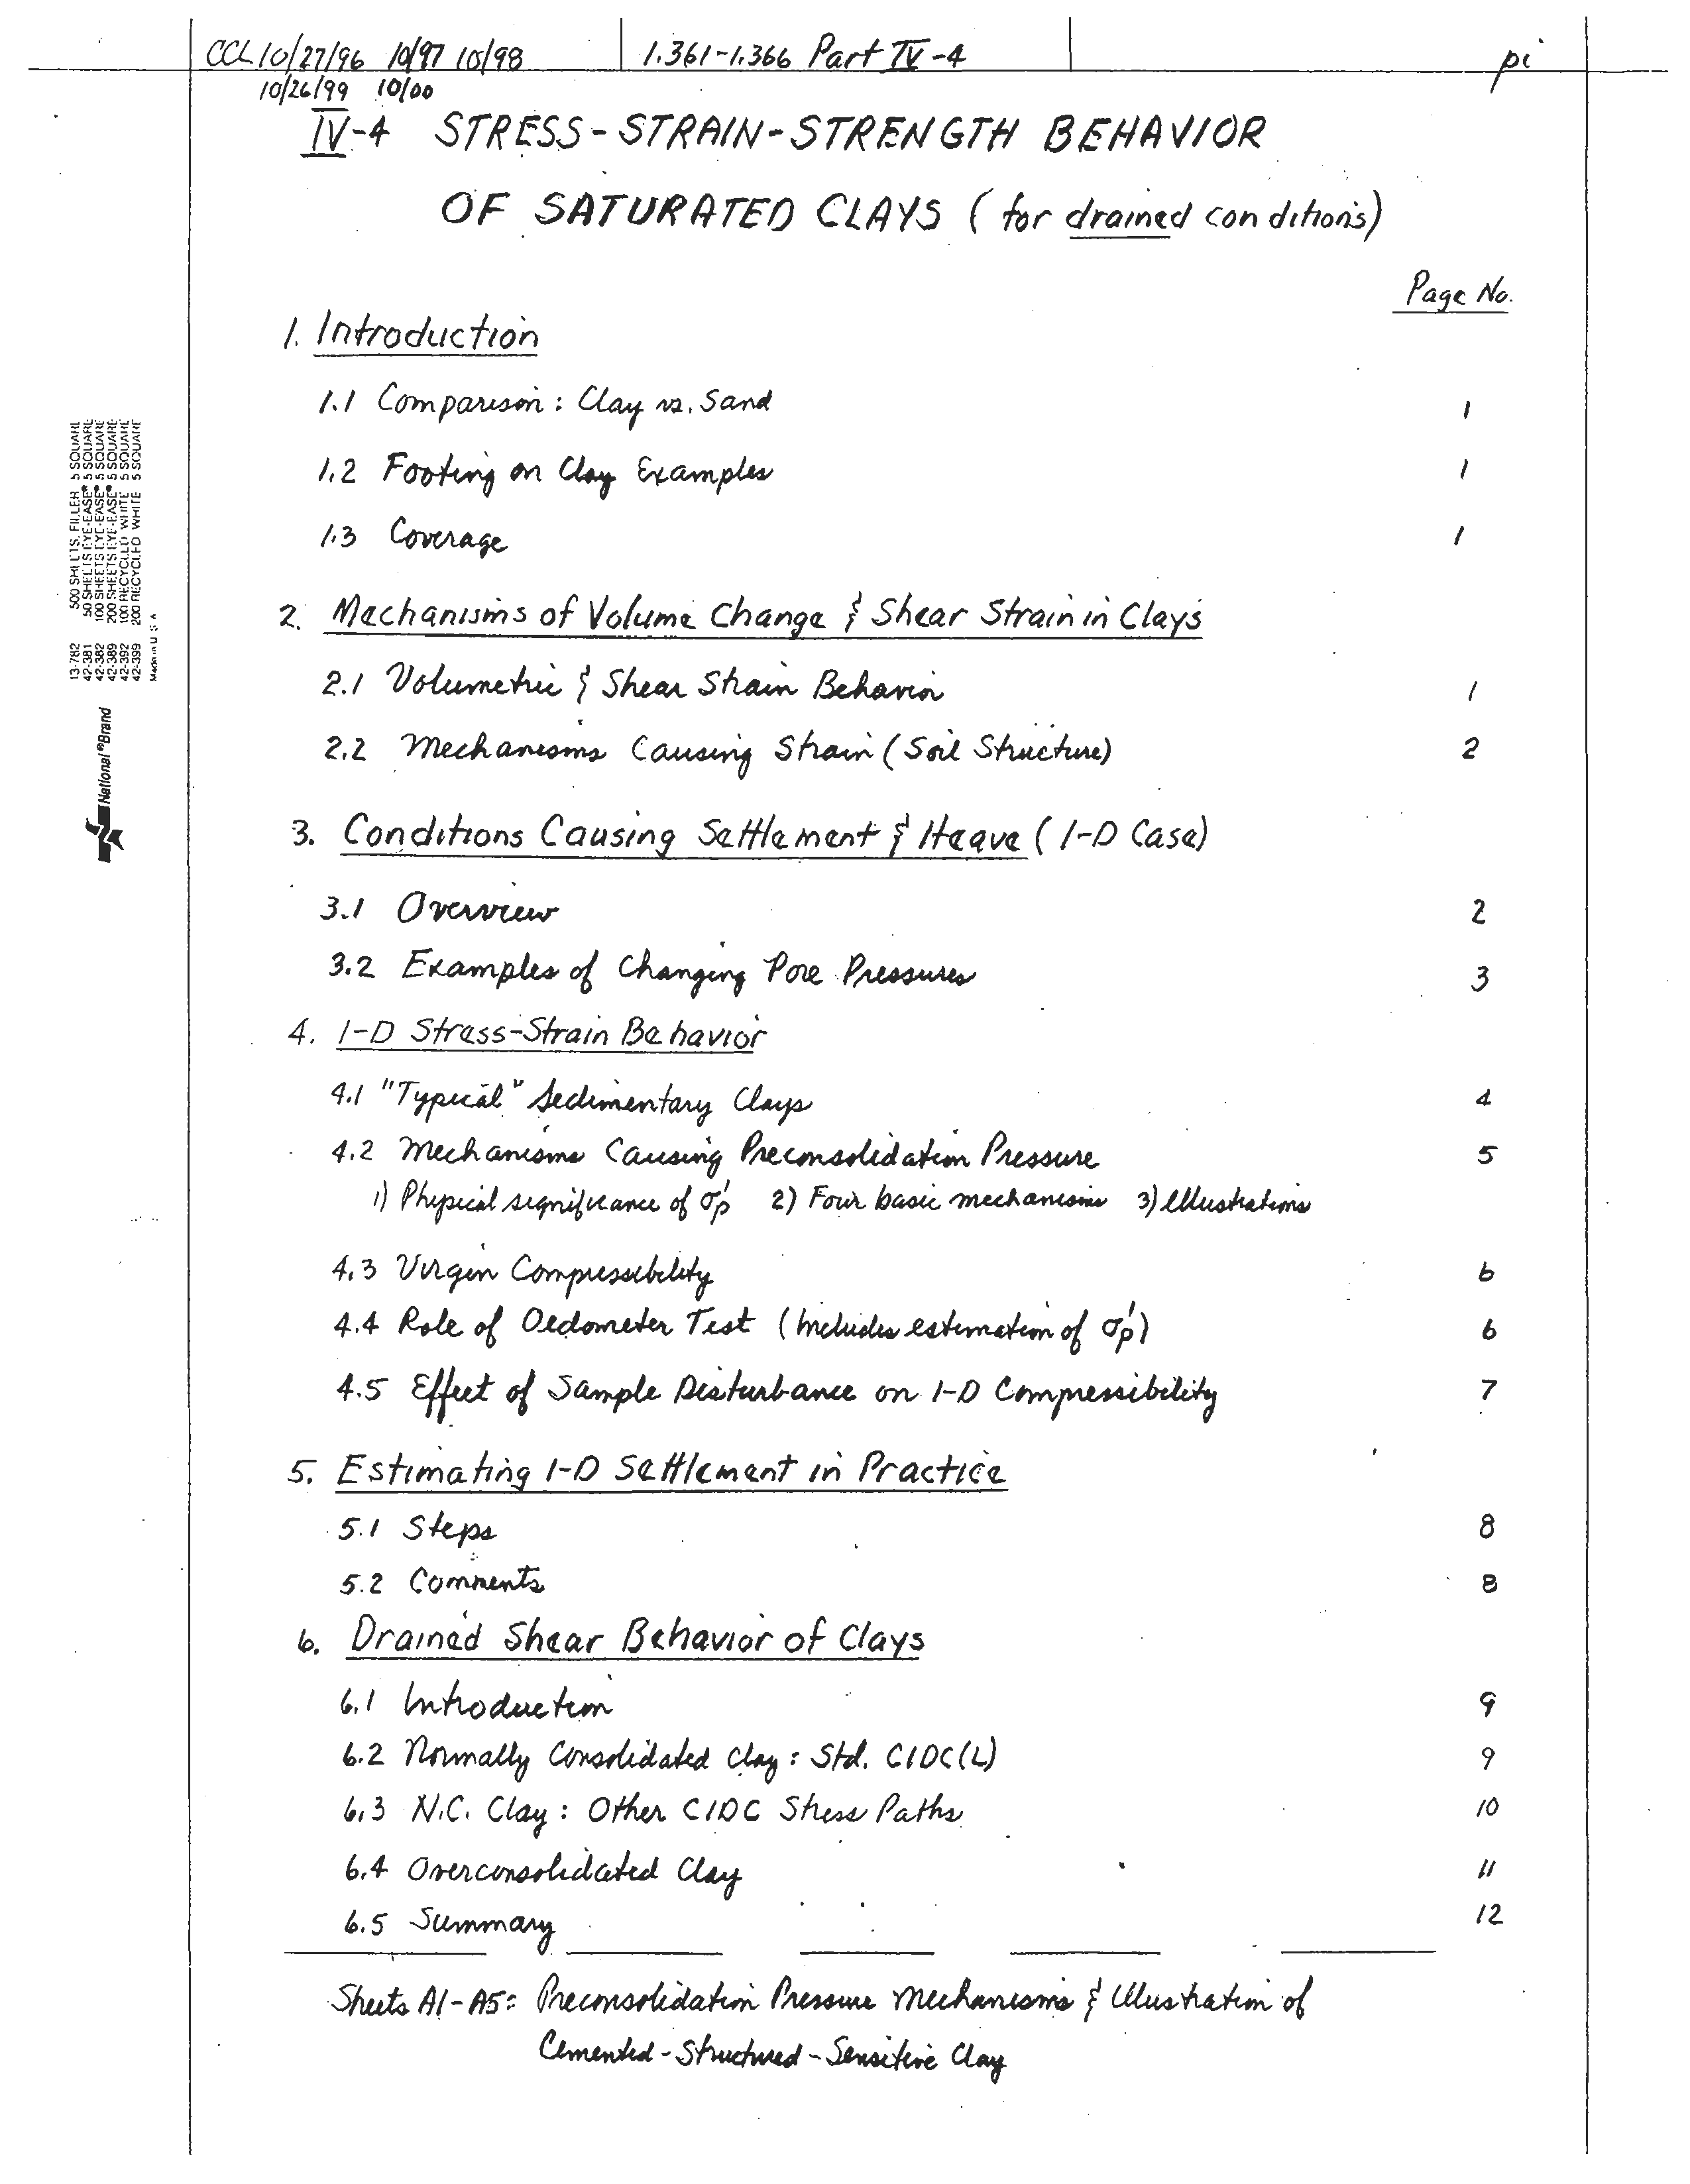 CCL 10/27/96 10/97 10/98
1.361-1.366 Part IV-4
pi
10/26/99 10/00
IV-4 STRESS-STRAIN-STRENGTH BEHAVIOR
OF SATURATED CLAYS (for drained conditions)
Page No.
1. Introduction
1.1 Comparison: Clay vs. Sand 1
1.2 Footing on Clay Examples 1
1.3 Coverage 1
2. Mechanisms of Volume Change & Shear Strain in Clays
2.1 Volumetric & Shear Strain Behavior 1
2.2 Mechanisms Causing Strain (Soil Structure) 2
3. Conditions Causing Settlement & Heave (1-D Case)
3.1 Overview 2
3.2 Examples of Changing Pore Pressures 3
4. 1-D Stress-Strain Behavior
4.1 "Typical" Sedimentary Clays 4
4.2 Mechanisms Causing Preconsolidation Pressure 5
1) Physical significance of σ'p 2) Four basic mechanisms 3) Illustrations
4.3 Virgin Compressibility 6
4.4 Role of Oedometer Test (Includes estimation of σ'p) 6
4.5 Effect of Sample Disturbance on 1-D Compressibility 7
5. Estimating 1-D Settlement in Practice
5.1 Steps 8
5.2 Comments 8
6. Drained Shear Behavior of Clays
6.1 Introduction 9
6.2 Normally Consolidated Clay: Std. CIDC(L) 9
6.3 N.C. Clay: Other CIDC Stress Paths 10
6.4 Overconsolidated Clay 11
6.5 Summary 12
Sheets A1-A5: Preconsolidation Pressure Mechanisms & Illustration of
Cemented-Structured-Sensitive Clay
13-782 500 SHEETS, FILLER 5 SQUARE
42-381 50 SHEETS EYE-EASE® 5 SQUARE
42-382 100 SHEETS EYE-EASE® 5 SQUARE
42-389 200 SHEETS EYE-EASE® 5 SQUARE
42-392 100 RECYCLED WHITE 5 SQUARE
42-399 200 RECYCLED WHITE 5 SQUARE
Made in U S A
National®Brand